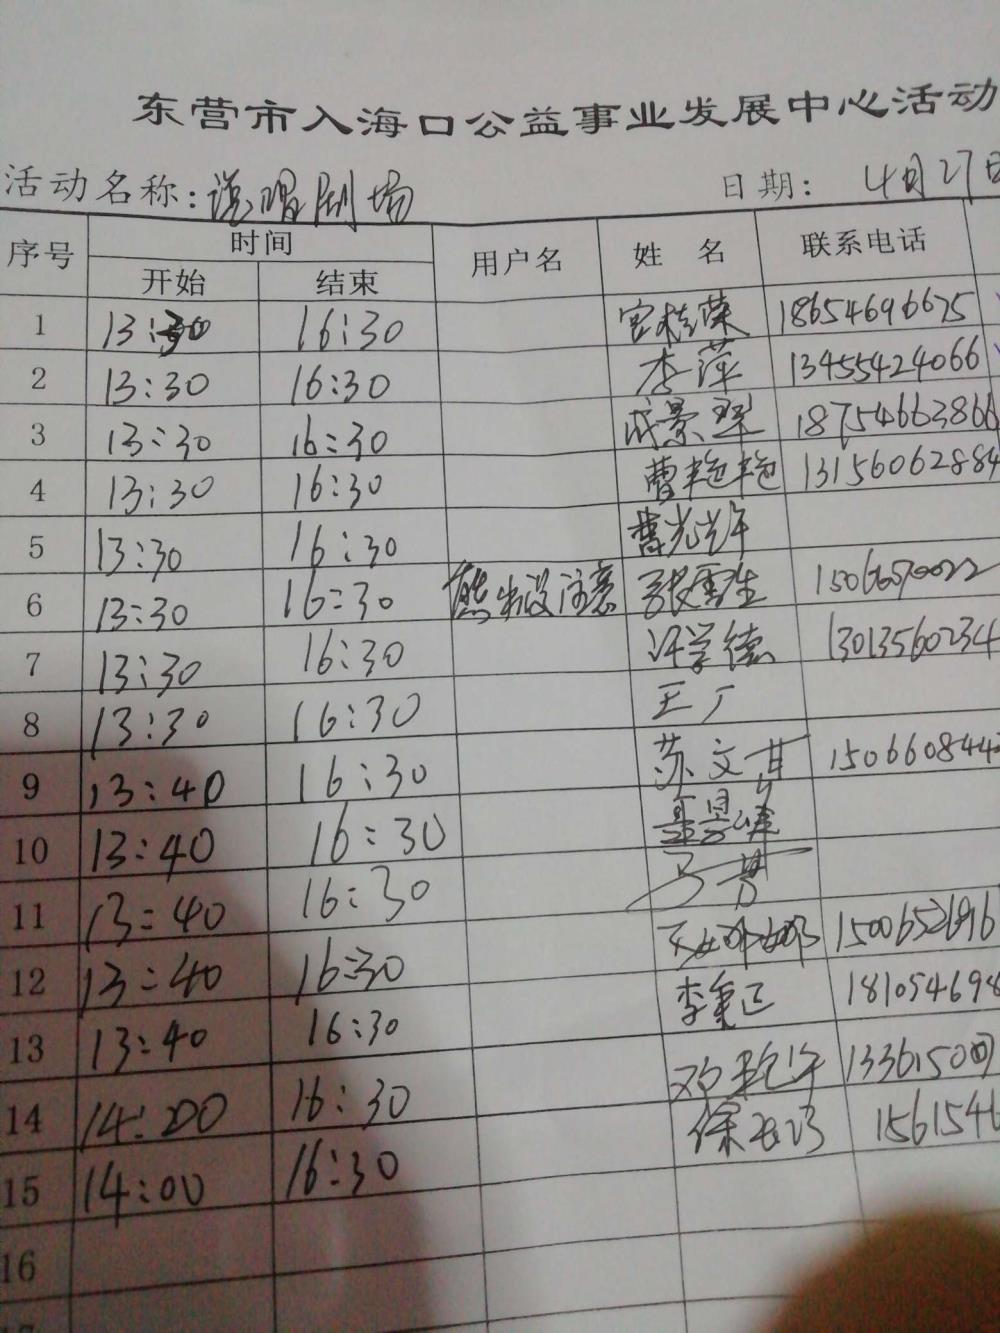 东营市入海口公益事业发展中心活动
活动名称:说唱剧场 日期: 4月27日
序号 时间 用户名 姓 名 联系电话
开始 结束
1 13:30 16:30 宫桂荣 18654696675
2 13:30 16:30 李萍 13455424066
3 13:30 16:30 成景翠 18754663866
4 13:30 16:30 曹艳艳 13156062884
5 13:30 16:30 曹光
6 13:30 16:30 熊出没注意 张雪胜 15066070022
7 13:30 16:30 许学德 13013560234
8 13:30 16:30 王厂
9 13:40 16:30 苏文甘 1506608442
10 13:40 16:30
11 13:40 16:30 马芳
12 13:40 16:30 1500652696
13 13:40 16:30 李秉正 181054698
14 14:00 16:30 邓艳华 13361500
15 14:00 16:30 徐 1561546
16
17